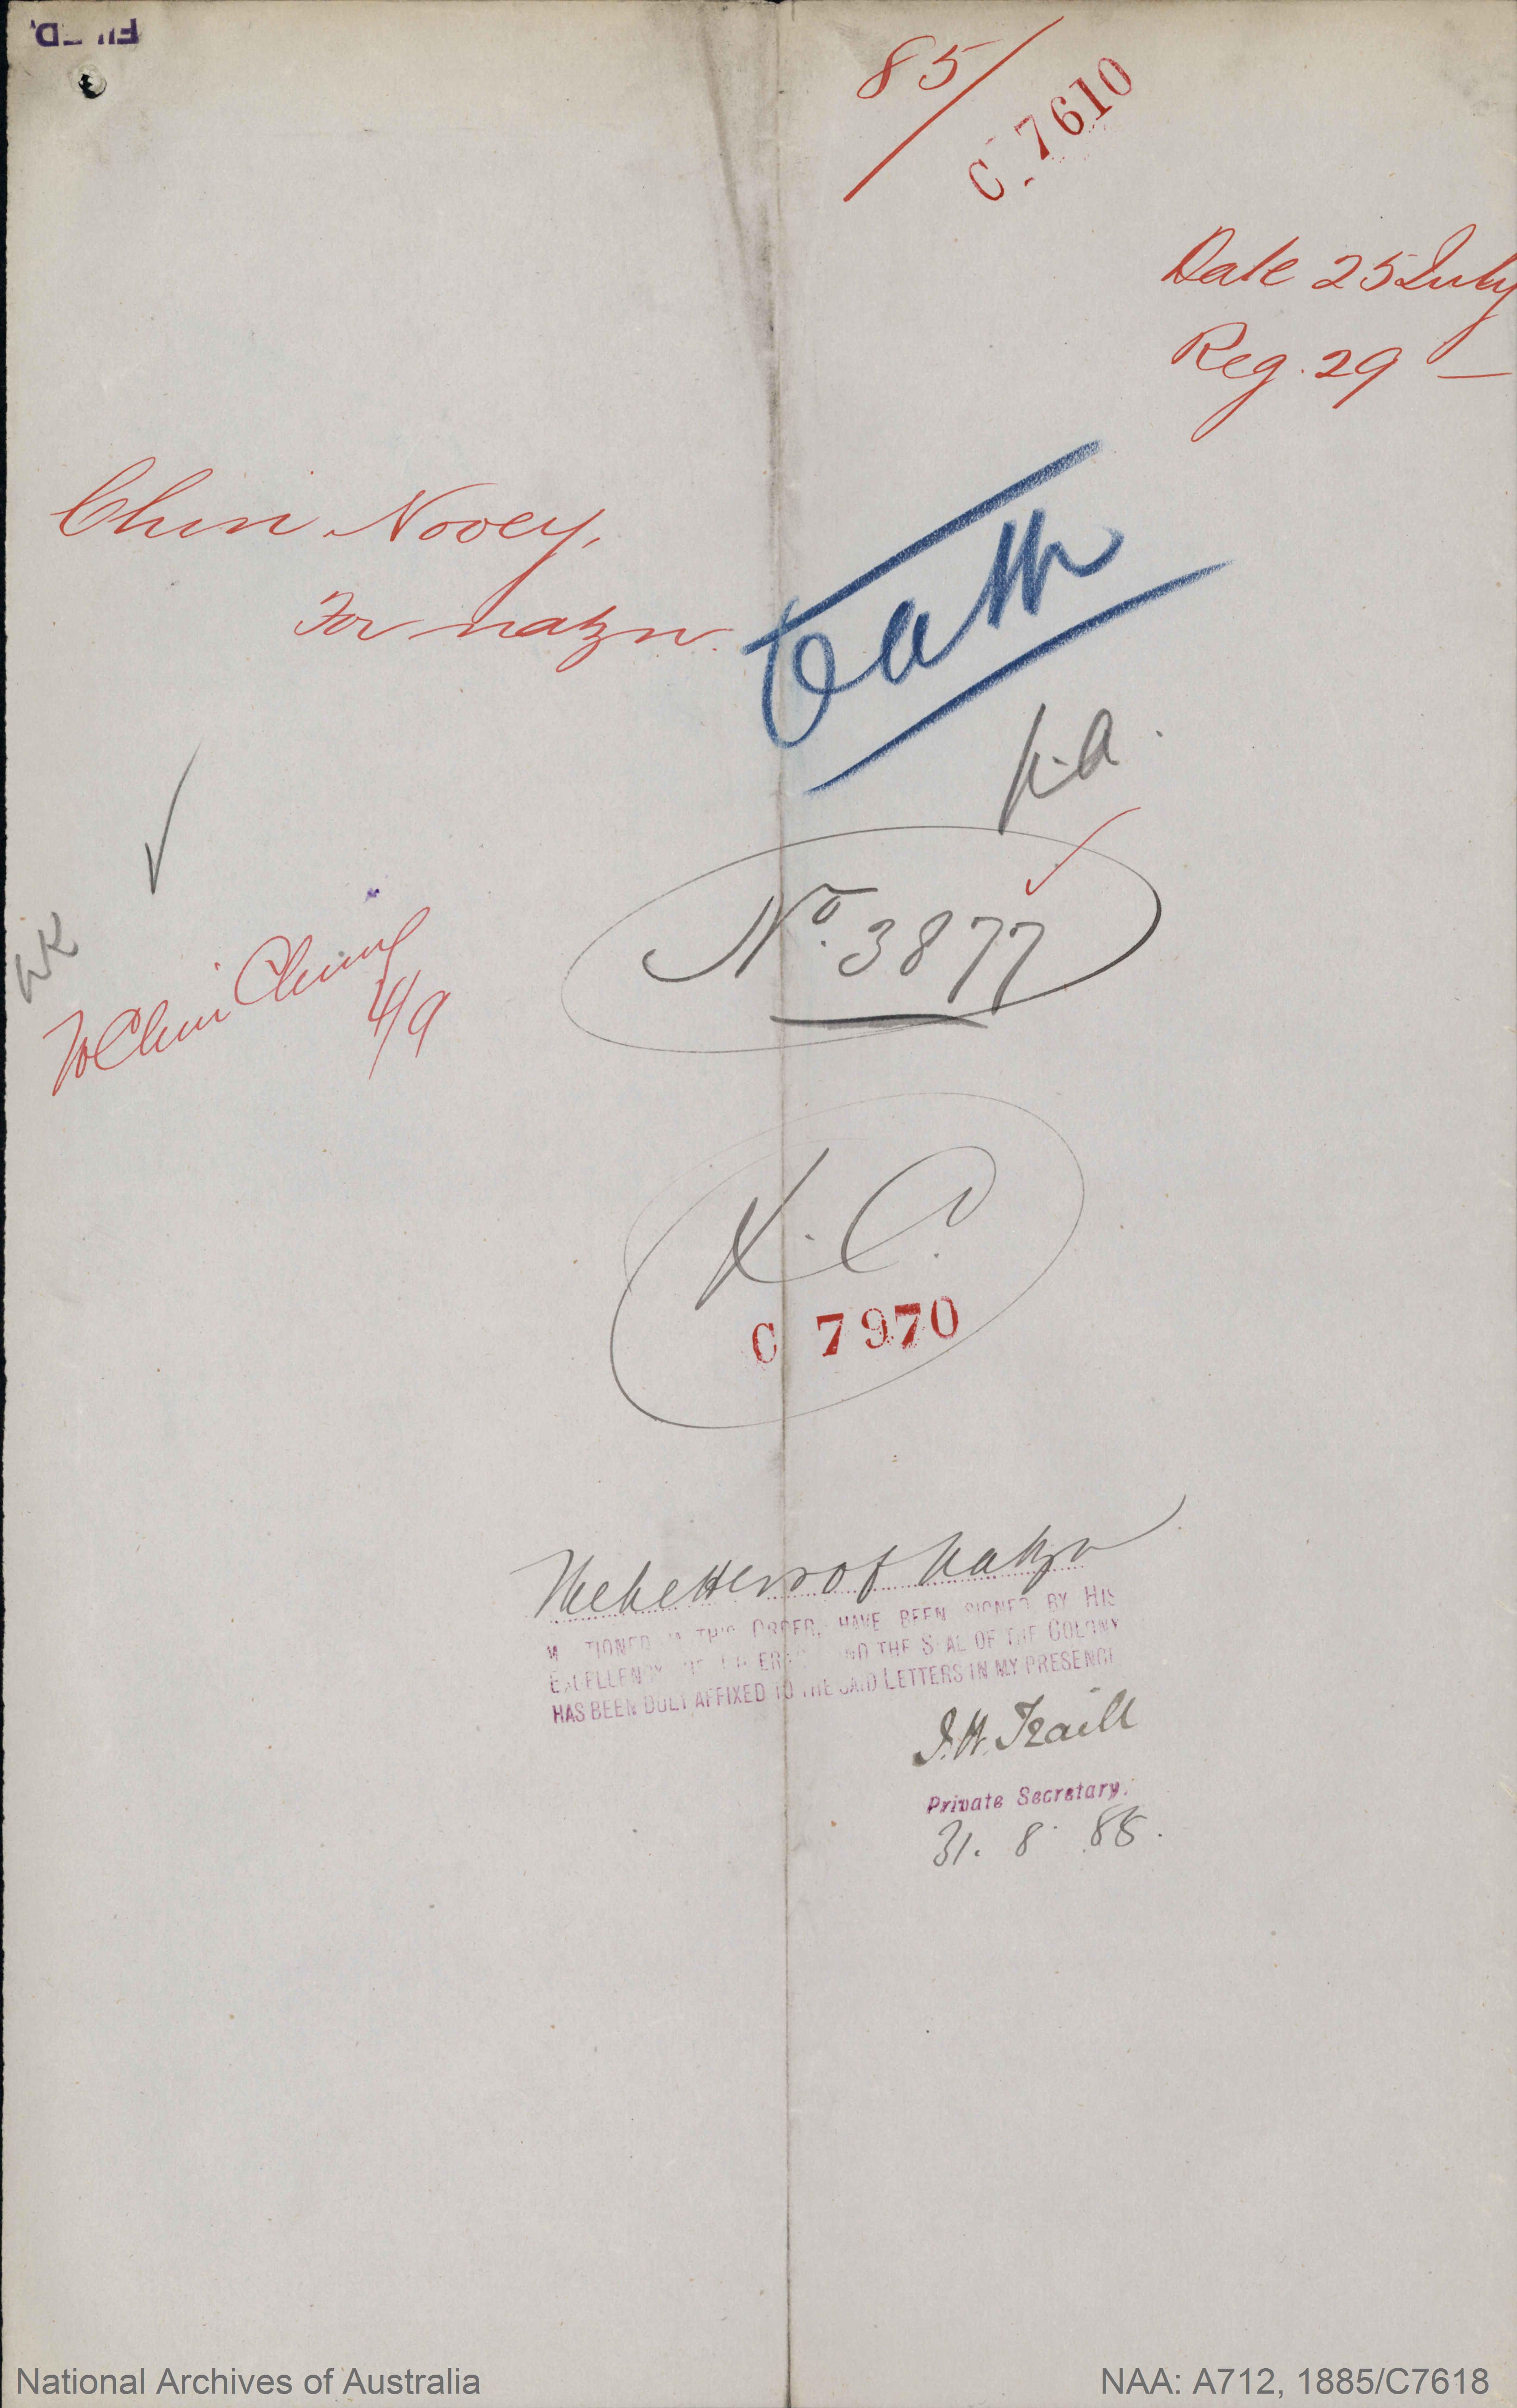 FILED.
85/
C 7610
Date 25 July
Reg. 29 —
Chin Nooey,
For natzn.
Oath
p.a.
No. 3877
WK
To Chin Ching
4/9
X.C.
C 7970
The Letters of Natzn
MENTIONED IN THIS ORDER, HAVE BEEN SIGNED BY HIS
EXCELLENCY AND THE SEAL OF THE COLONY
HAS BEEN DULY AFFIXED TO THE SAID LETTERS IN MY PRESENCE
J.W. Traill
Private Secretary.
31. 8. 85.
National Archives of Australia
NAA: A712, 1885/C7618